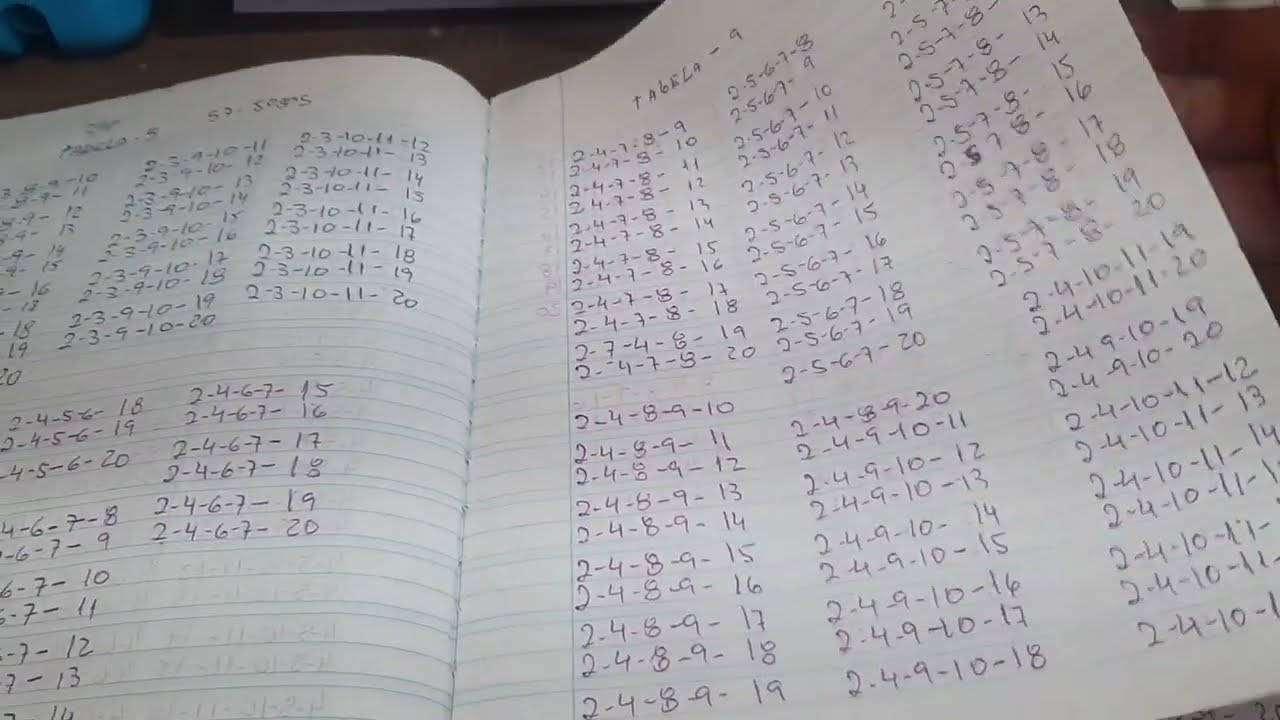 TABELA - 5
2-3-9-10-11
2-3-9-10- 12
2-3-9-10- 13
2-3-9-10- 14
2-3-9-10- 15
2-3-9-10- 16
2-3-9-10- 17
2-3-9-10- 18
2-3-9-10-19
2-3-9-10-20
2-3-10-11-12
2-3-10-11- 13
2-3-10-11- 14
2-3-10-11- 15
2-3-10-11-16
2-3-10-11- 17
2-3-10-11- 18
2-3-10-11- 19
2-3-10-11- 20
2-4-5-6- 18
2-4-5-6- 19
-4-5-6-20
4-6-7-8
-6-7- 9
6-7- 10
-7- 11
-7- 12
7- 13
2-4-6-7- 15
2-4-6-7- 16
2-4-6-7- 17
2-4-6-7- 18
2-4-6-7- 19
2-4-6-7- 20
TABELA - 9
2-4-7-8-9
2-4-7-8- 10
2-4-7-8- 11
2-4-7-8- 12
2-4-7-8- 13
2-4-7-8- 14
2-4-7-8- 15
2-4-7-8- 16
2-4-7-8- 17
2-4-7-8- 18
2-7-4-8- 19
2-4-7-8- 20
2-5-6-7-8
2-5-6-7- 9
2-5-6-7- 10
2-5-6-7- 11
2-5-6-7- 12
2-5-6-7- 13
2-5-6-7- 14
2-5-6-7- 15
2-5-6-7- 16
2-5-6-7- 17
2-5-6-7- 18
2-5-6-7- 19
2-5-6-7- 20
2-5-7-8- 13
2-5-7-8- 14
2-5-7-8- 15
2-5-7-8- 16
2-5-7-8- 17
2-5-7-8- 18
2-5-7-8- 19
2-5-7-8- 20
2-4-8-9-10
2-4-8-9- 11
2-4-8-9- 12
2-4-8-9- 13
2-4-8-9- 14
2-4-8-9- 15
2-4-8-9- 16
2-4-8-9- 17
2-4-8-9- 18
2-4-8-9- 19
2-4-8-9-20
2-4-9-10-11
2-4-9-10- 12
2-4-9-10-13
2-4-9-10- 14
2-4-9-10- 15
2-4-9-10-16
2-4-9-10-17
2-4-9-10-18
2-4-10-11-19
2-4-10-11-20
2-4-9-10-19
2-4-9-10- 20
2-4-10-11-12
2-4-10-11- 13
2-4-10-11- 14
2-4-10-11-1
2-4-10-11-
2-4-10-11-
2-4-10-1